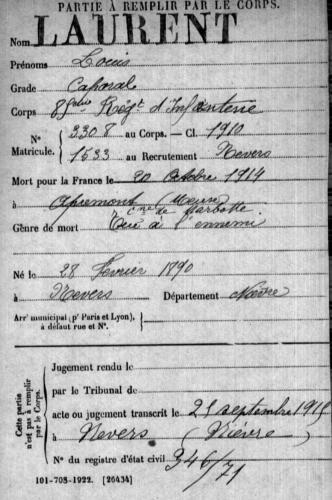 PARTIE À REMPLIR PAR LE CORPS.
Nom LAURENT
Prénoms Louis
Grade Caporal
Corps 85ème Régt d'Infanterie
N° Matricule. 3308 au Corps. — Cl. 1910
1533 au Recrutement Nevers
Mort pour la France le 20 Octobre 1914
à Apremont (Meuse)
cne de Marbotte
Genre de mort Tué à l'ennemi
Né le 28 Février 1890
à Nevers Département Nièvre
Arrt municipal (pr Paris et Lyon),
à défaut rue et N°.
Cette partie n'est pas à remplir par le Corps.
Jugement rendu le
par le Tribunal de
acte ou jugement transcrit le 25 septembre 1915
à Nevers (Nièvre)
N° du registre d'état civil 346/71
101-708-1922. [26434]